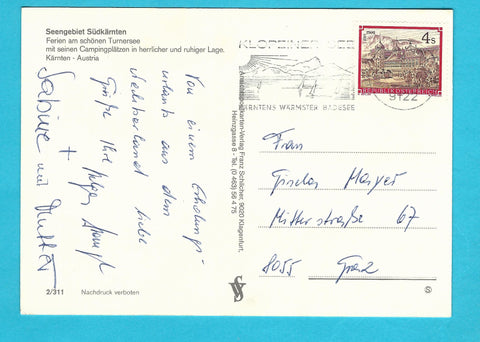 Seengebiet Südkärnten
Ferien am schönen Turnersee
mit seinen Campingplätzen in herrlicher und ruhiger Lage.
Kärnten - Austria
Von einem Erholungs-
urlaub aus dem
Nachbarland liebe
Grüße Ihre
+
Sabine und Mutter
2/311 Nachdruck verboten
Ansichtskarten-Verlag Franz Schilcher, 9020 Klagenfurt,
KLOPEINER SEE
KÄRNTENS WÄRMSTER BADESEE
9122
4 S
REPUBLIK ÖSTERREICH
Frau
Mayer
Mitterstraße 67
8055 Graz